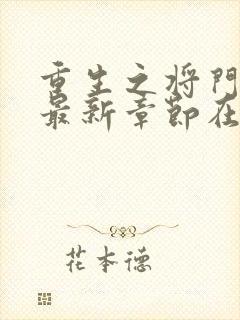 重生之将门
最新章节在
花本德